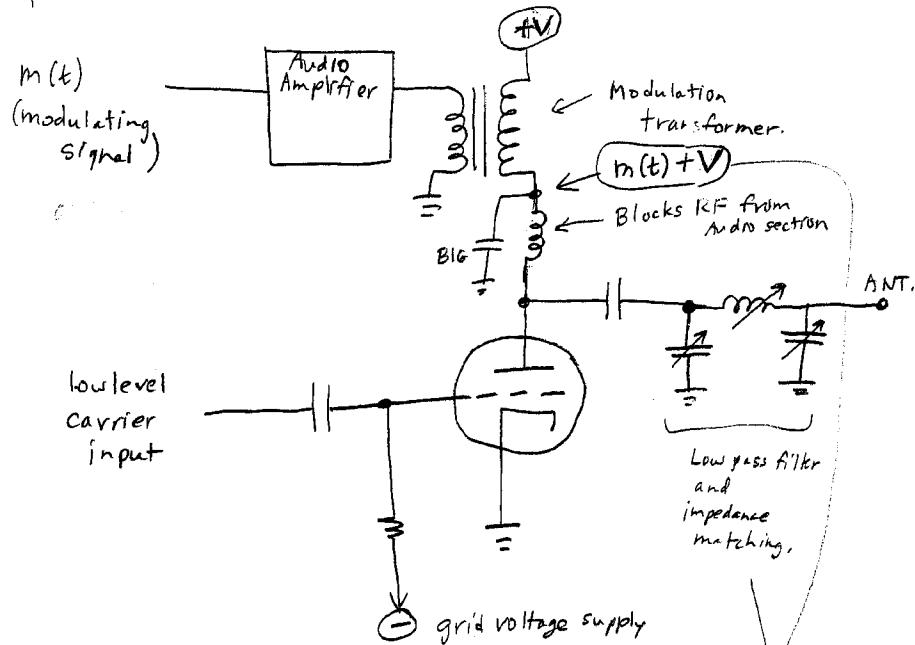 +V
m(t)
(modulating
signal)
Audio
Amplifier
Modulation
transformer.
m(t) + V
Blocks RF from
Audio section
BIG
ANT.
low level
carrier
input
Low pass filter
and
impedance
matching.
−
grid voltage supply